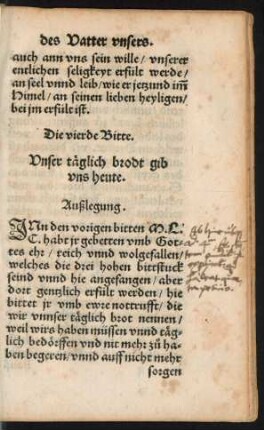 des Vatter vnsers.
auch ann vns sein wille/ vnserer
entlichen seligkeyt erfült werde/
an seel vnnd leib/ wie er jetzund im̃
Himel/ an seinen lieben heyligen/
bei jm erfült ist.
Die vierde Bitte.
Vnser täglich brodt gib
vns heute.
Außlegung.
INn den vorigen bitten M. L.
C. habt jr gebetten vmb Got-
tes ehr/ reich vnnd wolgefallen/
welches die drei hohen bittstuck
seind vnnd hie angefangen/ aber
dort gentzlich erfült werden/ hie
bittet jr vmb ewre notturfft/ die
wir vnnser täglich brot nennen/
weil wirs haben müssen vnnd täg-
lich bedörffen vnd nit mehr zů ha-
ben begeren/ vnnd auff nicht mehr
sorgen